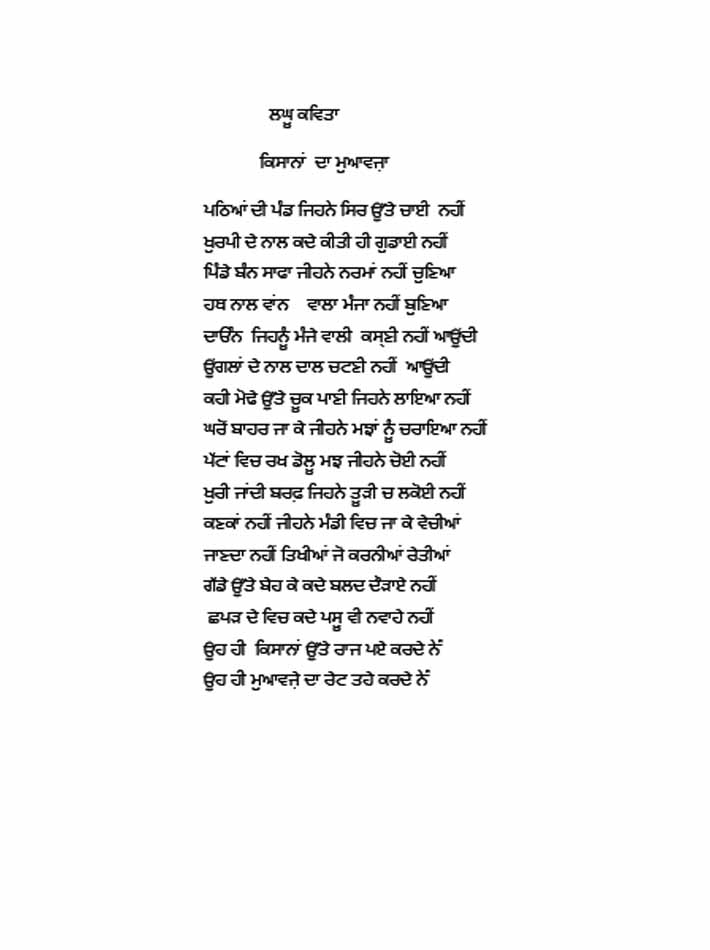 ਲਘੂ ਕਵਿਤਾ
ਕਿਸਾਨਾਂ ਦਾ ਮੁਆਵਜ਼ਾ
ਪਠਿਆਂ ਦੀ ਪੰਡ ਜਿਹਨੇ ਸਿਰ ਉੱਤੇ ਚਾਈ ਨਹੀਂ
ਖੁਰਪੀ ਦੇ ਨਾਲ ਕਦੇ ਕੀਤੀ ਹੀ ਗੁਡਾਈ ਨਹੀਂ
ਪਿੰਡੇ ਬੰਨ ਸਾਫਾ ਜੀਹਨੇ ਨਰਮਾਂ ਨਹੀਂ ਚੁਣਿਆ
ਹਥ ਨਾਲ ਵਾਂਨ ਵਾਲਾ ਮੰਜਾ ਨਹੀਂ ਬੁਣਿਆ
ਦਾਓੰਨ ਜਿਹਨੂੰ ਮੰਜੇ ਵਾਲੀ ਕਸ੍ਣੀ ਨਹੀਂ ਆਉਂਦੀ
ਉਂਗਲਾਂ ਦੇ ਨਾਲ ਦਾਲ ਚਟਣੀ ਨਹੀਂ ਆਉਂਦੀ
ਕਹੀ ਮੋਢੇ ਉੱਤੇ ਚੂਕ ਪਾਣੀ ਜਿਹਨੇ ਲਾਇਆ ਨਹੀਂ
ਘਰੋਂ ਬਾਹਰ ਜਾ ਕੇ ਜੀਹਨੇ ਮਝਾਂ ਨੂੰ ਚਰਾਇਆ ਨਹੀਂ
ਪੱਟਾਂ ਵਿਚ ਰਖ ਡੋਲੂ ਮਝ ਜੀਹਨੇ ਚੋਈ ਨਹੀਂ
ਖੁਰੀ ਜਾਂਦੀ ਬਰਫ਼ ਜਿਹਨੇ ਤੂੜੀ ਚ ਲਕੋਈ ਨਹੀਂ
ਕਣਕਾਂ ਨਹੀਂ ਜੀਹਨੇ ਮੰਡੀ ਵਿਚ ਜਾ ਕੇ ਵੇਚੀਆਂ
ਜਾਣਦਾ ਨਹੀਂ ਤਿਖੀਆਂ ਜੋ ਕਰਨੀਆਂ ਰੇਤੀਆਂ
ਗੱਡੇ ਉੱਤੇ ਬੇਹ ਕੇ ਕਦੇ ਬਲਦ ਦੌੜਾਏ ਨਹੀਂ
ਛਪੜ ਦੇ ਵਿਚ ਕਦੇ ਪਸ਼ੂ ਵੀ ਨਵਾਹੇ ਨਹੀਂ
ਉਹ ਹੀ ਕਿਸਾਨਾਂ ਉੱਤੇ ਰਾਜ ਪਏ ਕਰਦੇ ਨੇਂ
ਉਹ ਹੀ ਮੁਆਵਜ਼ੇ ਦਾ ਰੇਟ ਤਹੇ ਕਰਦੇ ਨੇਂ